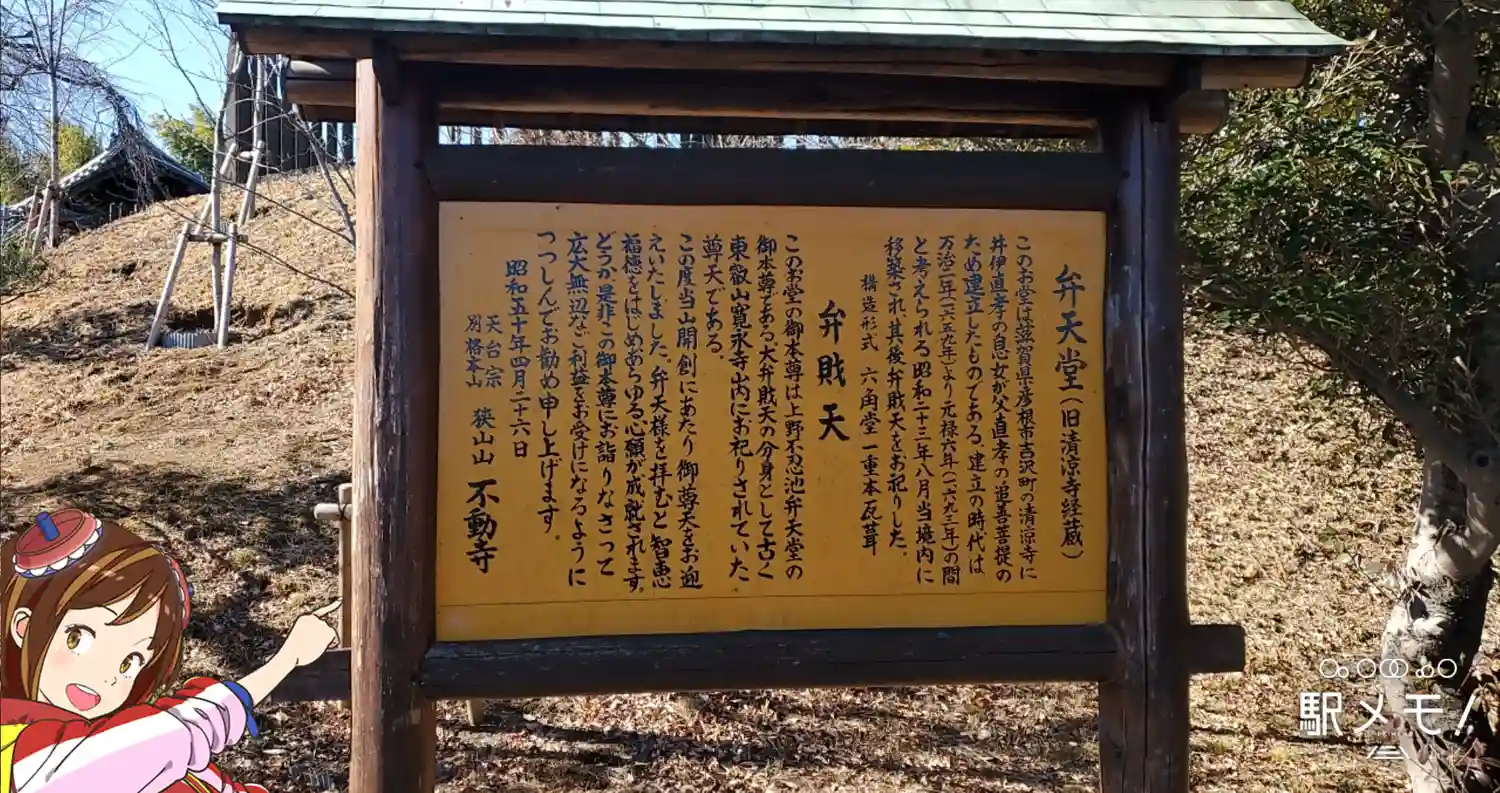 弁天堂（旧清涼寺経蔵）
このお堂は滋賀県彦根市古沢町の清涼寺に
井伊直孝の息女が父直孝の追善菩提の
ため建立したものである。建立の時代は
万治二年（一六五九年）より元禄六年（一六九三年）の間
と考えられる昭和二十三年八月当境内に
移築され、其後弁財天をお祀りした。
構造形式　六角堂一重本瓦葺
弁財天
このお堂の御本尊は上野不忍池弁天堂の
御本尊である大弁財天の分身として古く
東叡山寛永寺山内にお祀りされていた
尊天である。
この度当山開創にあたり御尊天をお迎
えいたしました。弁天様を拝むと智恵
福徳をはじめあらゆる心願が成就されます。
どうか是非この御本尊にお詣りなさって
広大無辺なご利益をお受けになるように
つつしんでお勧め申し上げます。
昭和五十年四月二十六日
天台宗
別格本山
狭山山　不動寺
駅メモ！